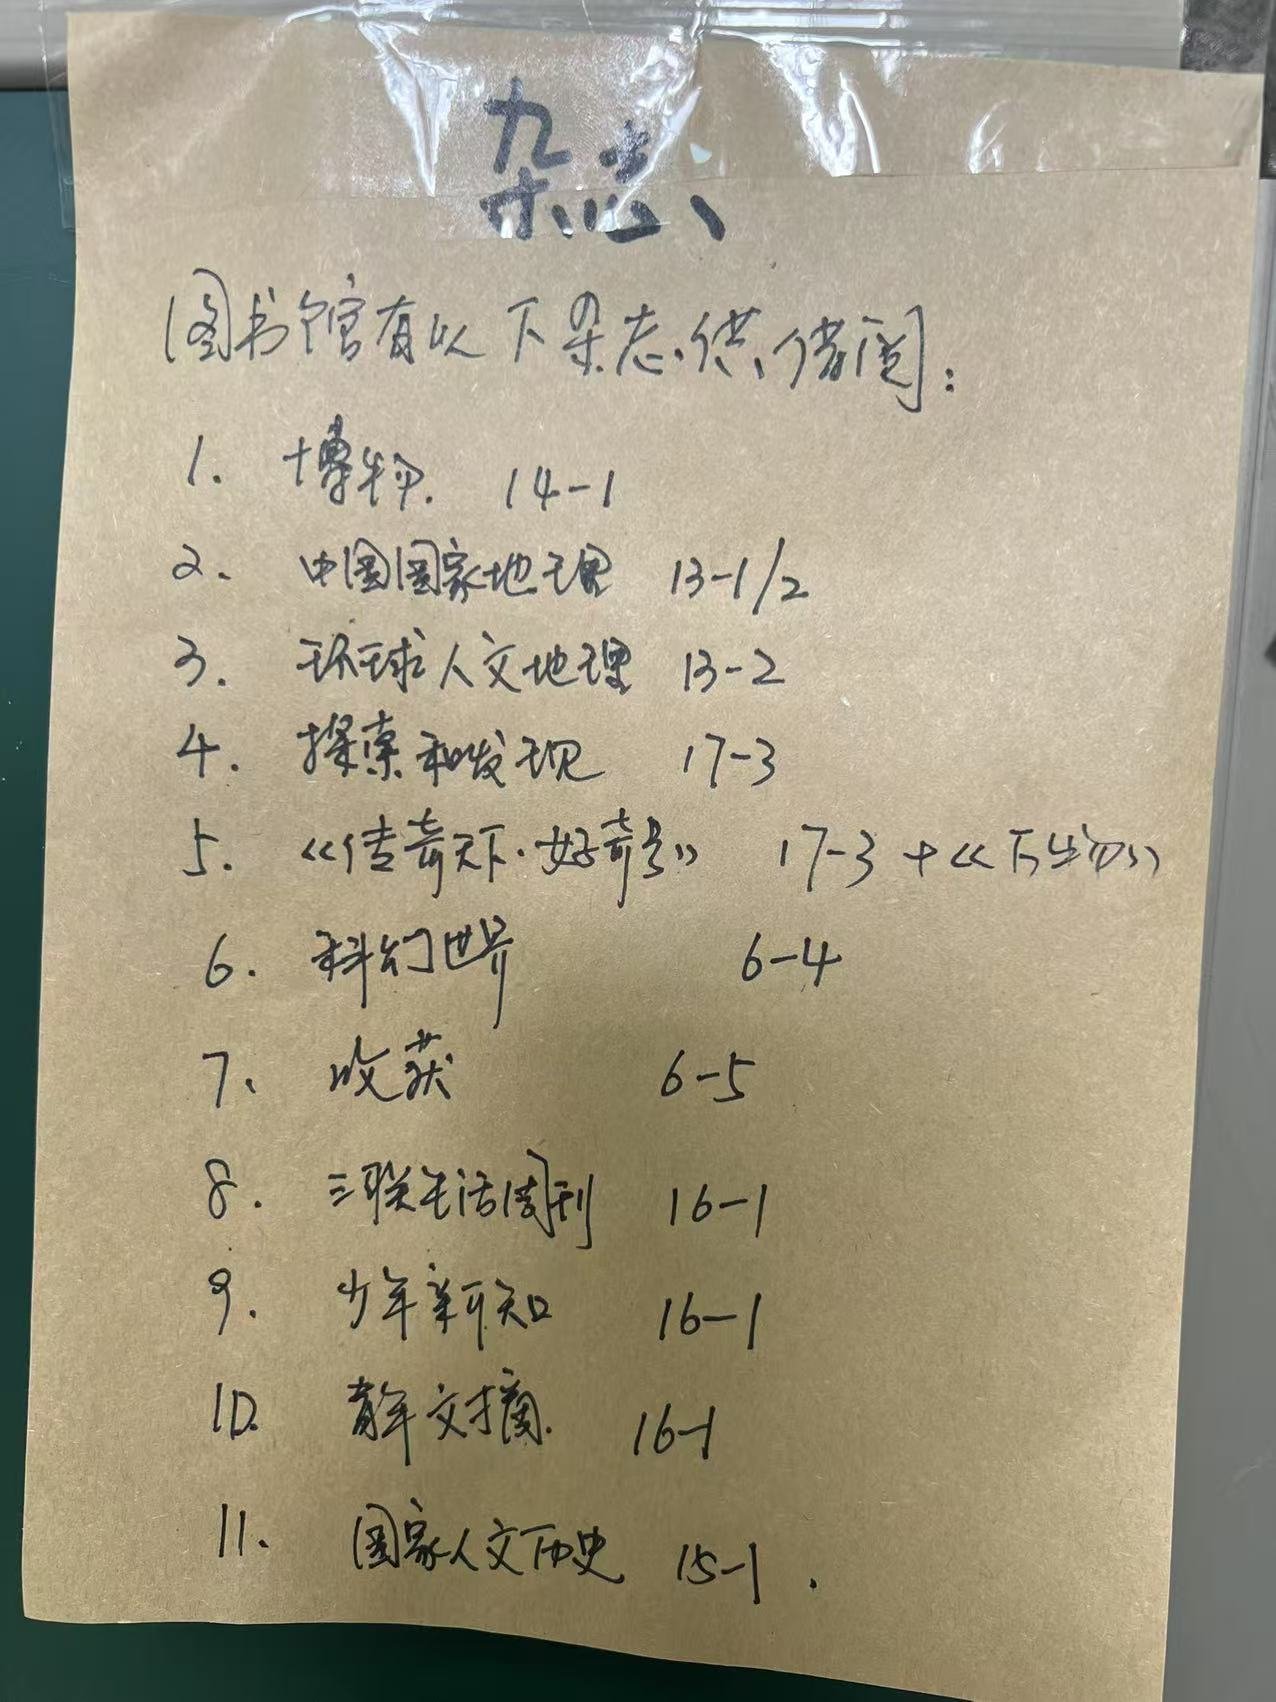 杂志
图书馆有以下杂志供借阅:
1. 博物. 14-1
2. 中国国家地理 13-1/2
3. 环球人文地理 13-2
4. 探索和发现 17-3
5. 《传奇天下·好奇号》 17-3 + 《万物》
6. 科幻世界 6-4
7. 收获 6-5
8. 三联生活周刊 16-1
9. 少年新知 16-1
10. 青年文摘. 16-1
11. 国家人文历史 15-1.